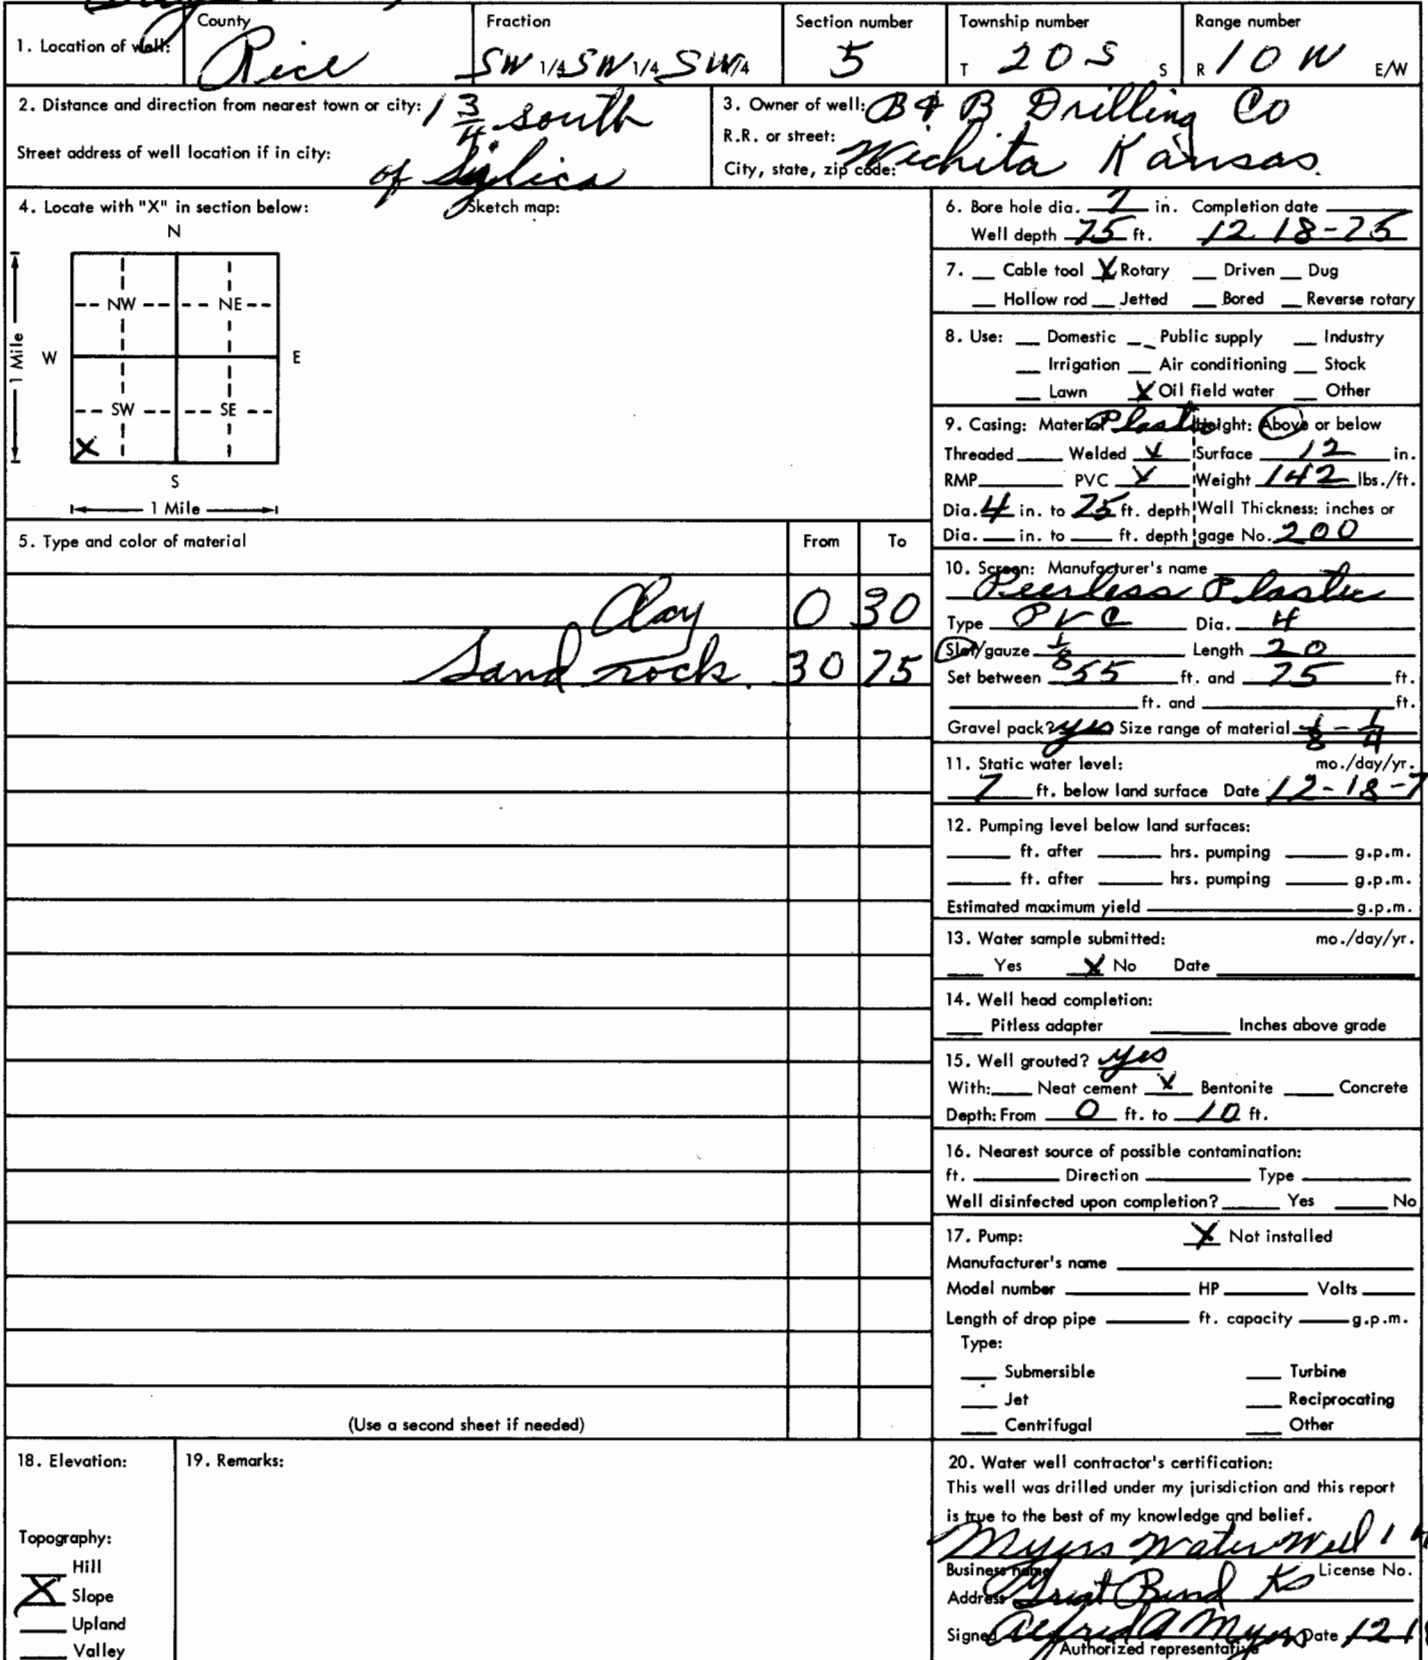 County Fraction Section number Township number Range number
1. Location of well: Rice SW 1/4 SW 1/4 SW 1/4 5 T 20 S S R 10 W E/W
2. Distance and direction from nearest town or city: 1 3/4 south
Street address of well location if in city: of Sylica
3. Owner of well: B & B Drilling Co
R.R. or street:
City, state, zip code: Wichita Kansas.
4. Locate with "X" in section below: Sketch map:
N
NW NE
W E
1 Mile
SW SE
X
S
1 Mile
5. Type and color of material From To
Clay 0 30
Sand rock. 30 75
(Use a second sheet if needed)
6. Bore hole dia. 7 in. Completion date
Well depth 75 ft. 12 18-75
7. Cable tool X Rotary Driven Dug
Hollow rod Jetted Bored Reverse rotary
8. Use: Domestic Public supply Industry
Irrigation Air conditioning Stock
Lawn X Oil field water Other
9. Casing: Material Plastic Height: Above or below
Threaded Welded X Surface 12 in.
RMP PVC X Weight 142 lbs./ft.
Dia. 4 in. to 75 ft. depth Wall Thickness: inches or
Dia. in. to ft. depth gage No. 200
10. Screen: Manufacturer's name
Peerless Plastic
Type PVC Dia. 4
Slot/gauze 1/8 Length 20
Set between 55 ft. and 75 ft.
ft. and ft.
Gravel pack? yes Size range of material 1/8 - 1/4
11. Static water level: mo./day/yr.
7 ft. below land surface Date 12-18-7
12. Pumping level below land surfaces:
ft. after hrs. pumping g.p.m.
ft. after hrs. pumping g.p.m.
Estimated maximum yield g.p.m.
13. Water sample submitted: mo./day/yr.
Yes X No Date
14. Well head completion:
Pitless adapter Inches above grade
15. Well grouted? yes
With: Neat cement X Bentonite Concrete
Depth: From 0 ft. to 10 ft.
16. Nearest source of possible contamination:
ft. Direction Type
Well disinfected upon completion? Yes No
17. Pump: X Not installed
Manufacturer's name
Model number HP Volts
Length of drop pipe ft. capacity g.p.m.
Type:
Submersible Turbine
Jet Reciprocating
Centrifugal Other
18. Elevation:
Topography:
Hill
X Slope
Upland
Valley
19. Remarks:
20. Water well contractor's certification:
This well was drilled under my jurisdiction and this report
is true to the best of my knowledge and belief.
Myers Water Well 1
Business name License No.
Address Great Bend Ks
Signed Alfred A Myers Date 12 1
Authorized representative